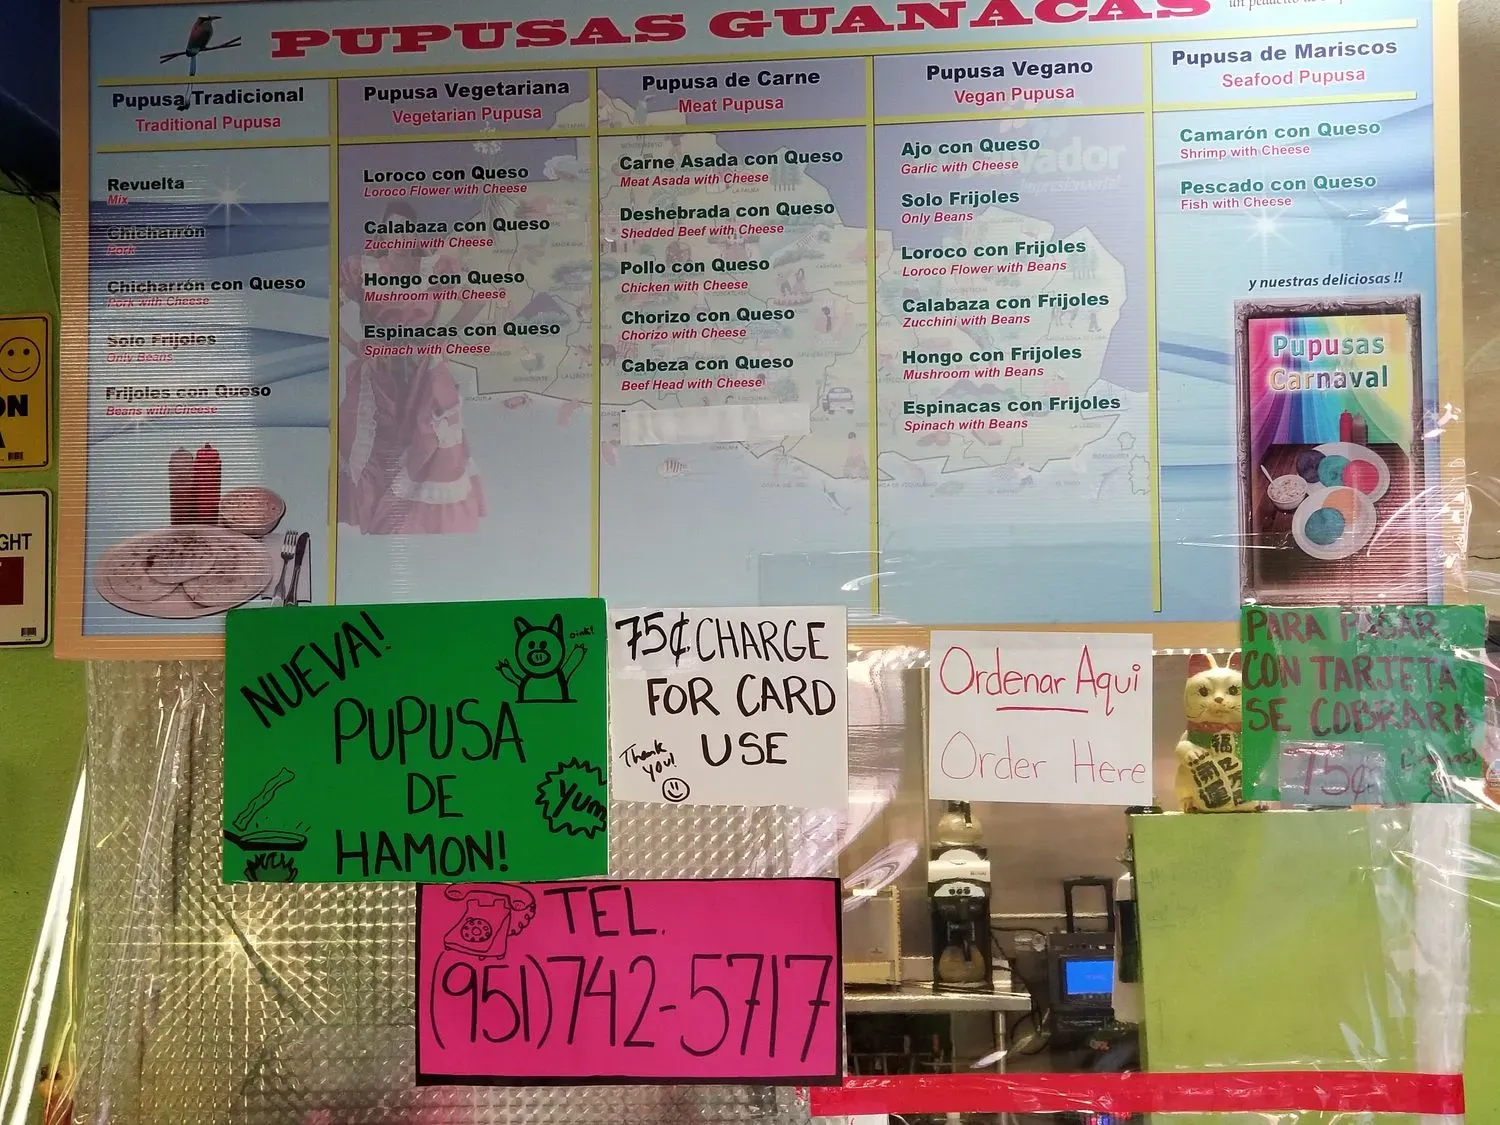 PUPUSAS GUANACAS
Pupusa Tradicional
Traditional Pupusa
Revuelta
Mix
Chicharrón
Pork
Chicharrón con Queso
Pork with Cheese
Solo Frijoles
Only Beans
Frijoles con Queso
Beans with Cheese
Pupusa Vegetariana
Vegetarian Pupusa
Loroco con Queso
Loroco Flower with Cheese
Calabaza con Queso
Zucchini with Cheese
Hongo con Queso
Mushroom with Cheese
Espinacas con Queso
Spinach with Cheese
Pupusa de Carne
Meat Pupusa
Carne Asada con Queso
Meat Asada with Cheese
Deshebrada con Queso
Shedded Beef with Cheese
Pollo con Queso
Chicken with Cheese
Chorizo con Queso
Chorizo with Cheese
Cabeza con Queso
Beef Head with Cheese
Pupusa Vegano
Vegan Pupusa
Ajo con Queso
Garlic with Cheese
Solo Frijoles
Only Beans
Loroco con Frijoles
Loroco Flower with Beans
Calabaza con Frijoles
Zucchini with Beans
Hongo con Frijoles
Mushroom with Beans
Espinacas con Frijoles
Spinach with Beans
Pupusa de Mariscos
Seafood Pupusa
Camarón con Queso
Shrimp with Cheese
Pescado con Queso
Fish with Cheese
y nuestras deliciosas !!
Pupusas
Carnaval
NUEVA!
oink!
PUPUSA
DE
HAMON!
Yum
75¢ CHARGE
FOR CARD
USE
Thank
you!
Ordenar Aqui
Order Here
PARA PAGAR
CON TARJETA
SE COBRARA
75¢
TEL.
(951)742-5717